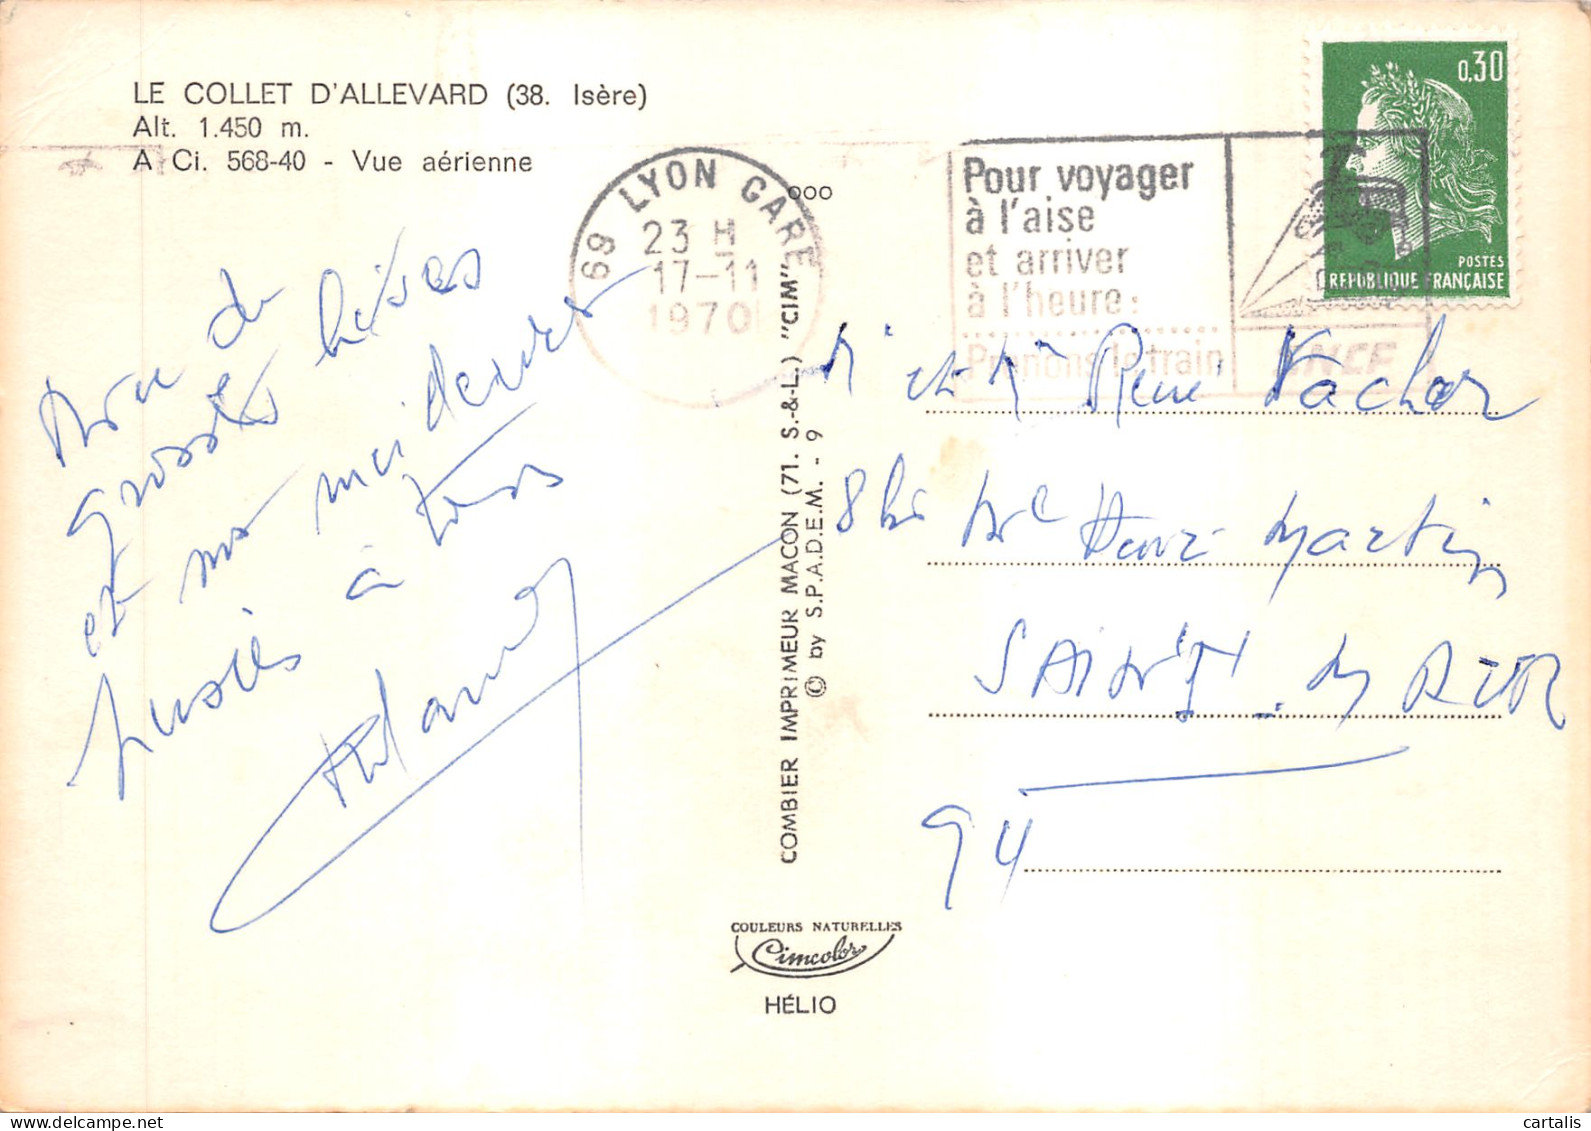 LE COLLET D'ALLEVARD (38. Isère)
Alt. 1.450 m.
A Ci. 568-40 - Vue aérienne
ooo
69 LYON GARE
23 H
17-11
1970
Pour voyager
à l'aise
et arriver
à l'heure:
Prenons le train
SNCF
0,30
POSTES
REPUBLIQUE FRANÇAISE
de
grosses bises
et nos meilleures
à tous
COMBIER IMPRIMEUR MACON (71. S.-&-L.) "CIM"
© by S.P.A.D.E.M. - 9
M et Me René Vachor
8 bis Mal Henri Martin
SAINT-MAUR
94
COULEURS NATURELLES
Cimcolor
HÉLIO
cartalis